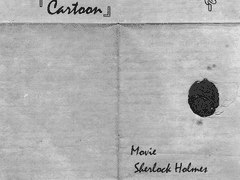 『Cartoon』
Movie
Sherlock Holmes